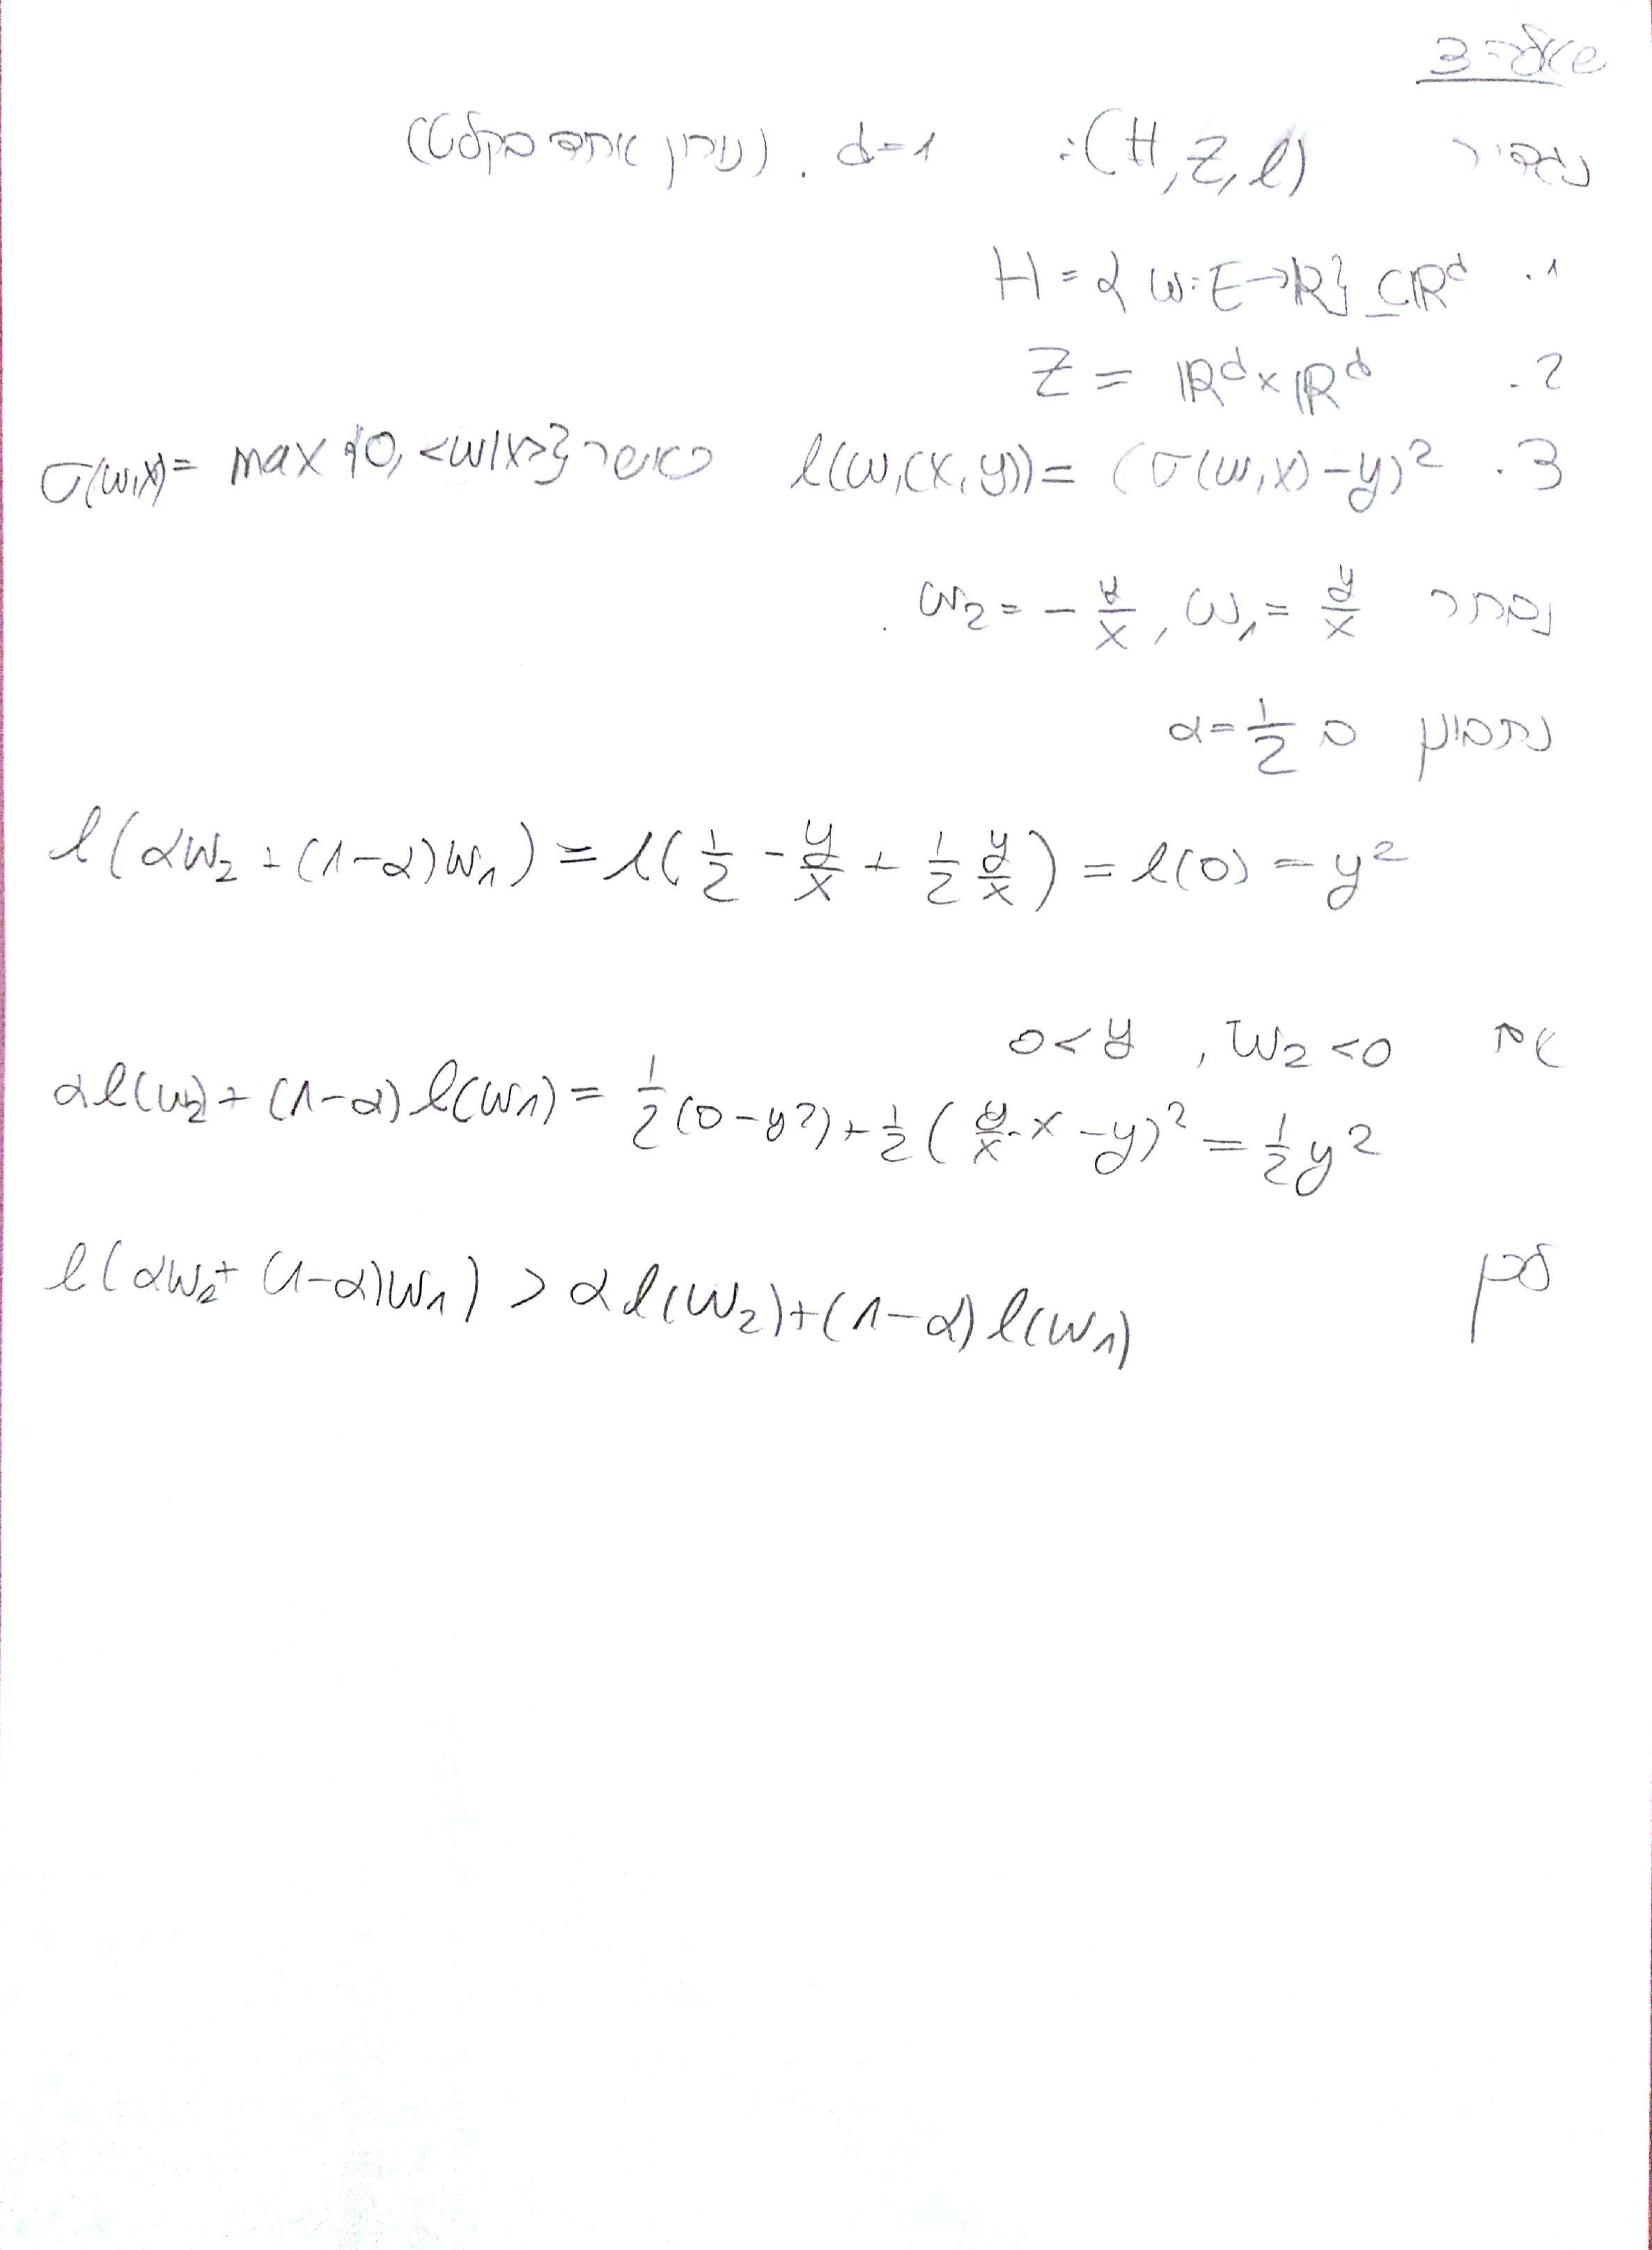 שאלה 3
נגדיר (H, Z, l): d=1. (נוירון אחד בקלט)
1. H = { w: E→ℝ} ⊆ ℝ^d
2. Z = ℝ^d × ℝ^d
3. l(w,(x,y)) = (σ(w,x)-y)² כאשר σ(w,x) = max {0, <w|x>}
נבחר w₁ = y/x , w₂ = - y/x .
נתבונן ב α = 1/2
l(αw₂ + (1-α)w₁) = l(1/2 - y/x + 1/2 y/x) = l(0) = y²
אך w₂<0 , 0<y
αl(w₂) + (1-α) l(w₁) = 1/2 (0-y²) + 1/2 ( y/x · x - y)² = 1/2 y²
לכן l(αw₂ + (1-α)w₁) > αl(w₂) + (1-α) l(w₁)